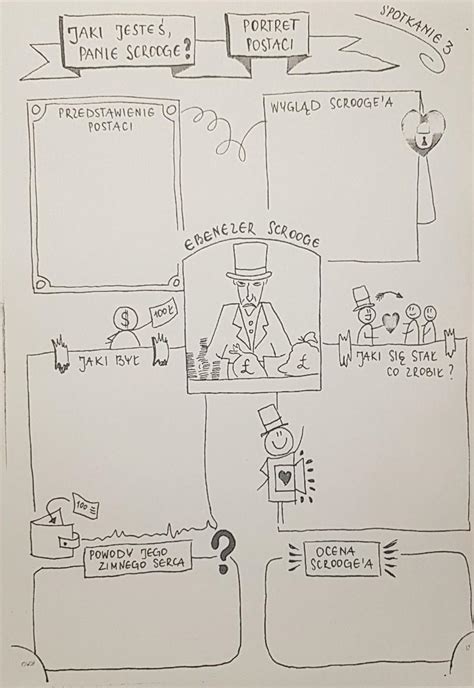 JAKI JESTEŚ,
PANIE SCROOGE?
PORTRET
POSTACI
SPOTKANIE 3
PRZEDSTAWIENIE
POSTACI
WYGLĄD SCROOGE'A
EBENEZER SCROOGE
$
100£
JAKI BYŁ
£
£
JAKI SIĘ STAŁ
CO ZROBIŁ?
100 £
POWODY JEGO
ZIMNEGO SERCA
?
OCENA
SCROOGE'A